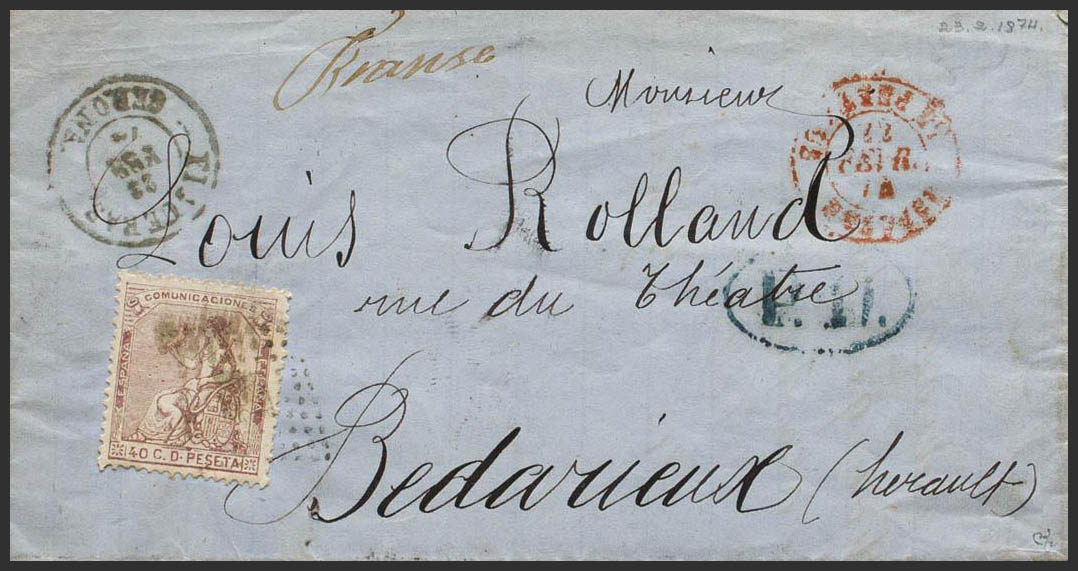 23.2.1874.
Franse
Monsieur
Louis Rolland
rue du Théatre
Bedarieux (herault)
GERONA
23
FEB
74
P.D.
COMUNICACIONES
ESPAÑA
ESPAÑA
40 C. D. PESETA